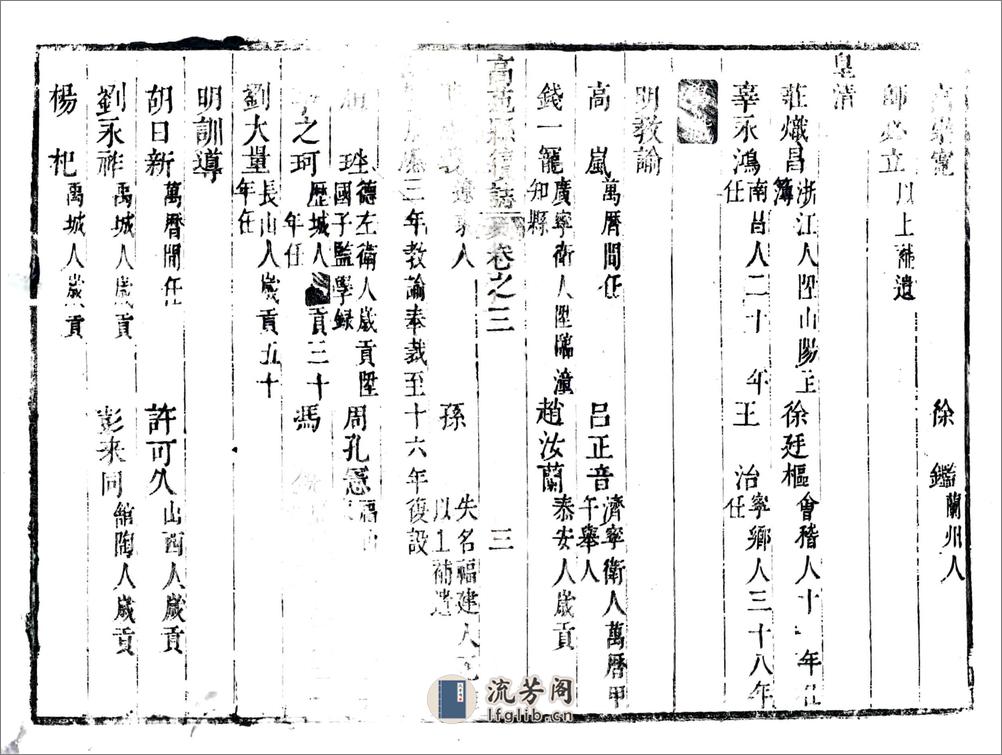 徐　鑑蘭州人
師必立以上補遺
皇清
莊熾昌浙江人陞山陽主簿　徐廷樞會稽人十一年任
辜永鴻南昌人二十年任　王　治寧鄉人三十八年任
明教諭
高　嵐萬曆間任　呂正音濟寧衛人萬曆甲午舉人
錢一寵廣寧衛人陞臨潼知縣　趙汝蘭泰安人歲貢
高苑縣續誌卷之三　三
人　孫失名福建人以上補遺
三年教諭奉裁至十六年復設
德左衛人歲貢陞國子監學録　周孔
之珂歷城人貢三十年任　馮
劉大量長山人歲貢五十年任
明訓導
胡日新萬曆間任　許可久山西人歲貢
劉永祚禹城人歲貢　彭來同館陶人歲貢
楊　杞禹城人歲貢
流芳阁
lfglib.cn